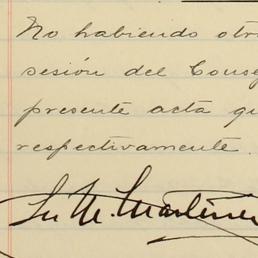 No habiendo otr
sesión del Conse
presente acta qu
respectivamente.
M. Martíne